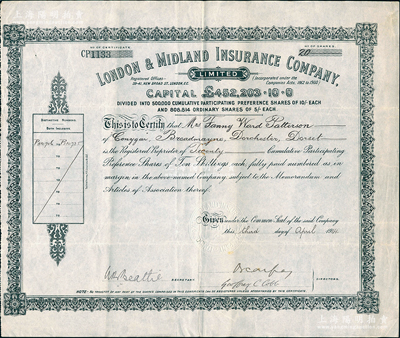 Nº OF CERTIFICATE
CP1133
Nº OF SHARES
20
LONDON & MIDLAND INSURANCE COMPANY,
LIMITED
Registered Offices:-
39-41, NEW BROAD ST, LONDON, E.C.
(Incorporated under the
Companies Acts, 1862 to 1900)
CAPITAL £452,203·10·0
DIVIDED INTO 500,000 CUMULATIVE PARTICIPATING PREFERENCE SHARES OF 10/- EACH
AND 806,814 ORDINARY SHARES OF 5/- EACH.
DISTINCTIVE NUMBERS
BOTH INCLUSIVE
to
This is to Certify that Mrs Fanny Ward Patterson
of Conygar, Broadmayne, Dorchester, Dorset
is the Registered Proprietor of Twenty Cumulative Participating
Preference Shares of Ten Shillings each, fully paid numbered as in
margin in the above-named Company, subject to the Memorandum and
Articles of Association thereof.
Given under the Common Seal of the said Company
this third day of April
SECRETARY
DIRECTORS
Geoffrey C. Cobb